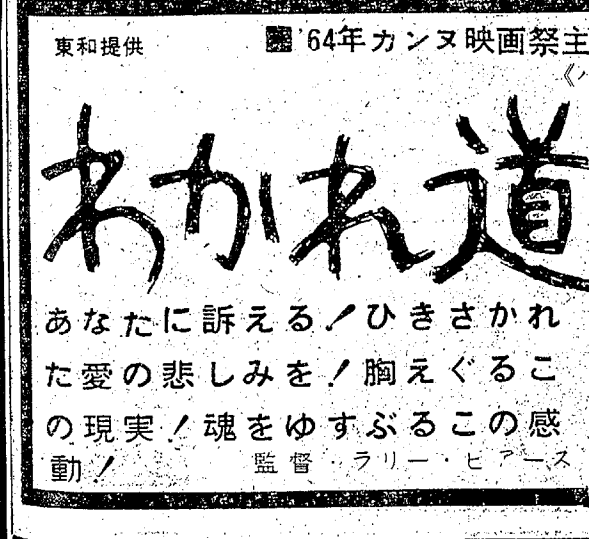 東和提供
'64年カンヌ映画祭主
わかれ道
あなたに訴える!ひきさかれ
た愛の悲しみを!胸えぐるこ
の現実!魂をゆすぶるこの感
動!
監督・ラリー・ピアース